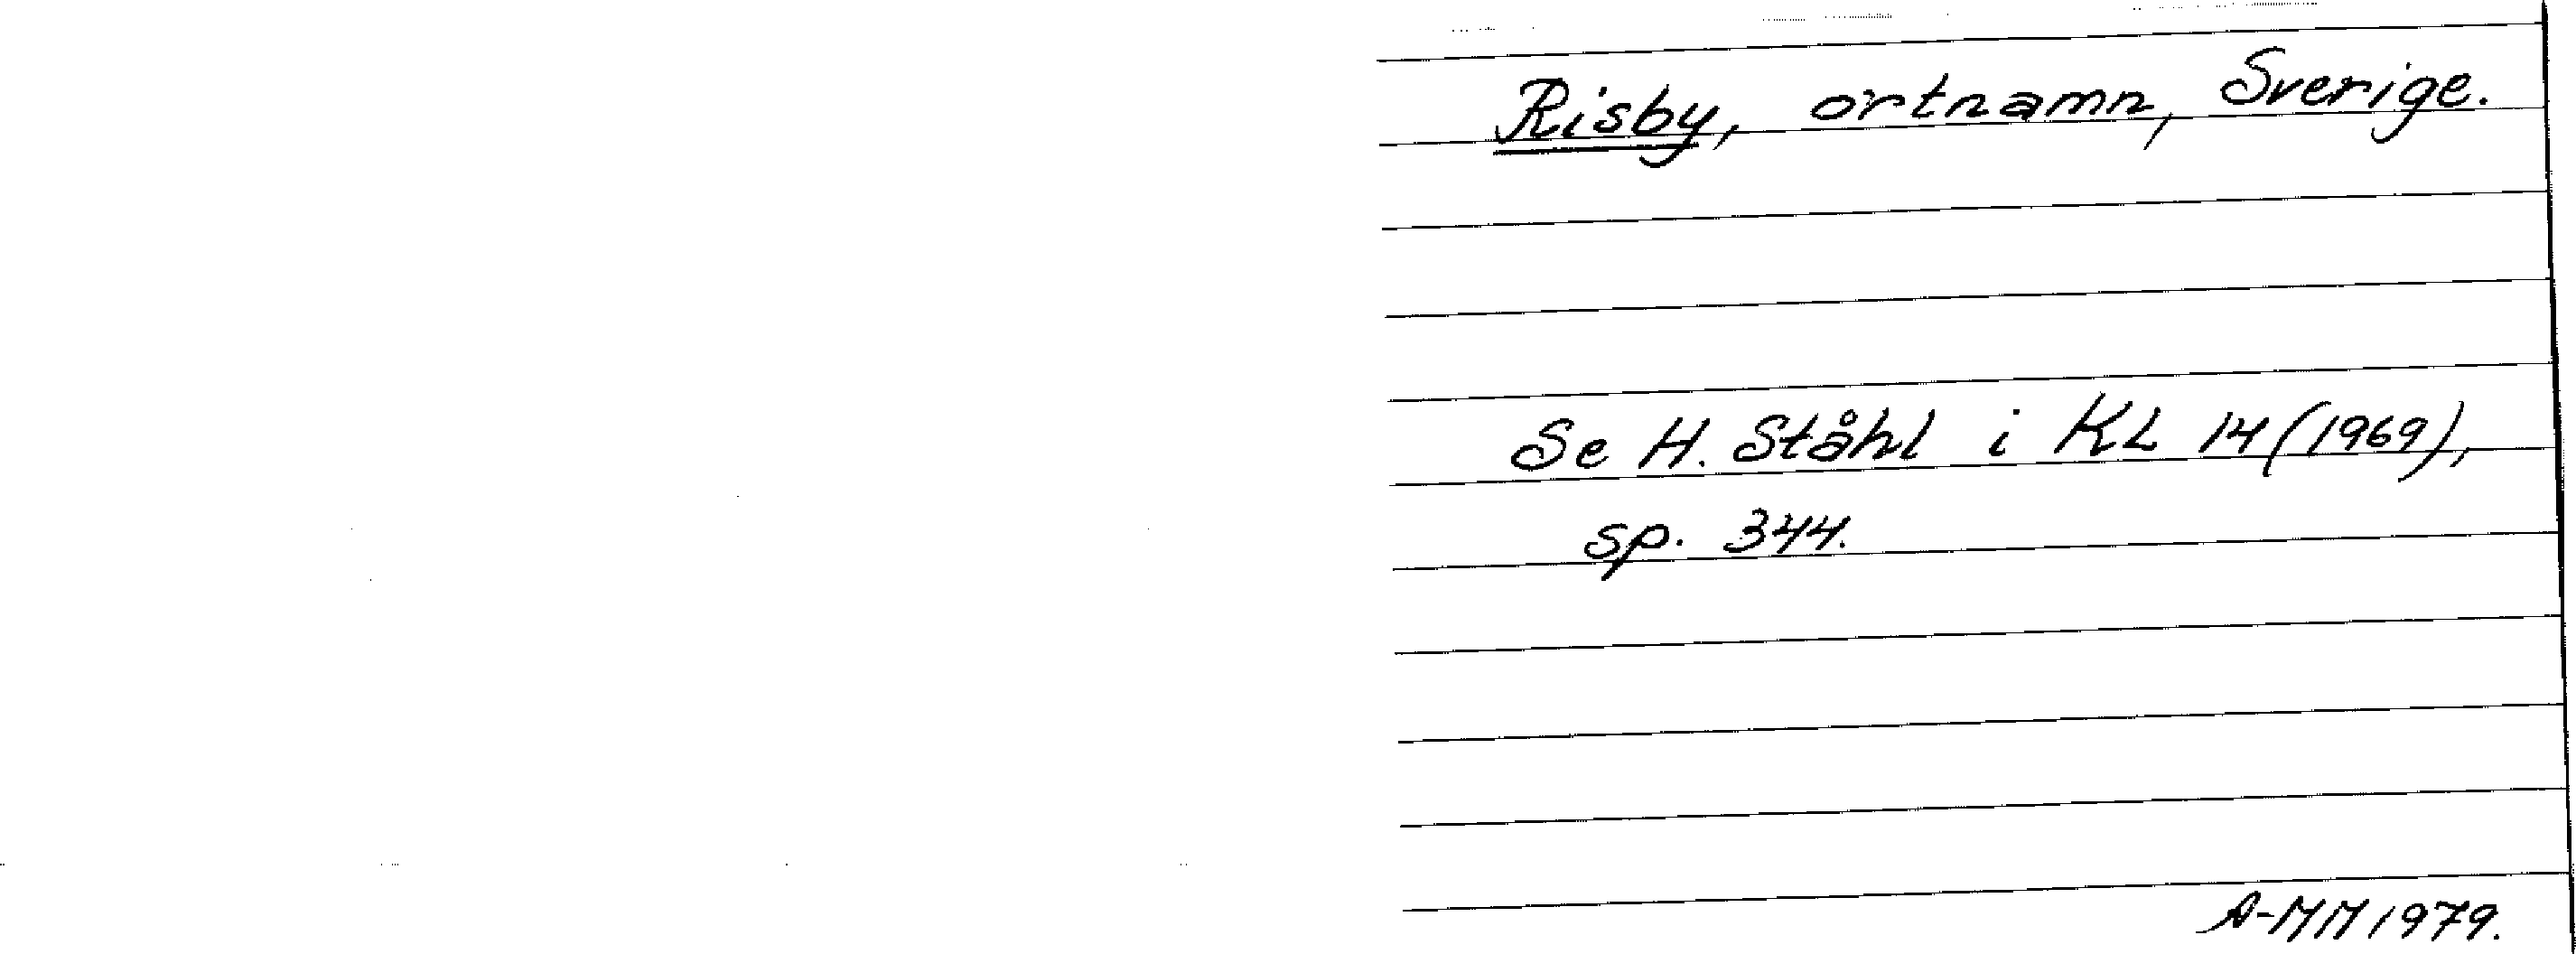 Risby, ortnamn, Sverige.
Se H. Ståhl i KL 14 (1969),
sp. 344.
A-MM 1979.